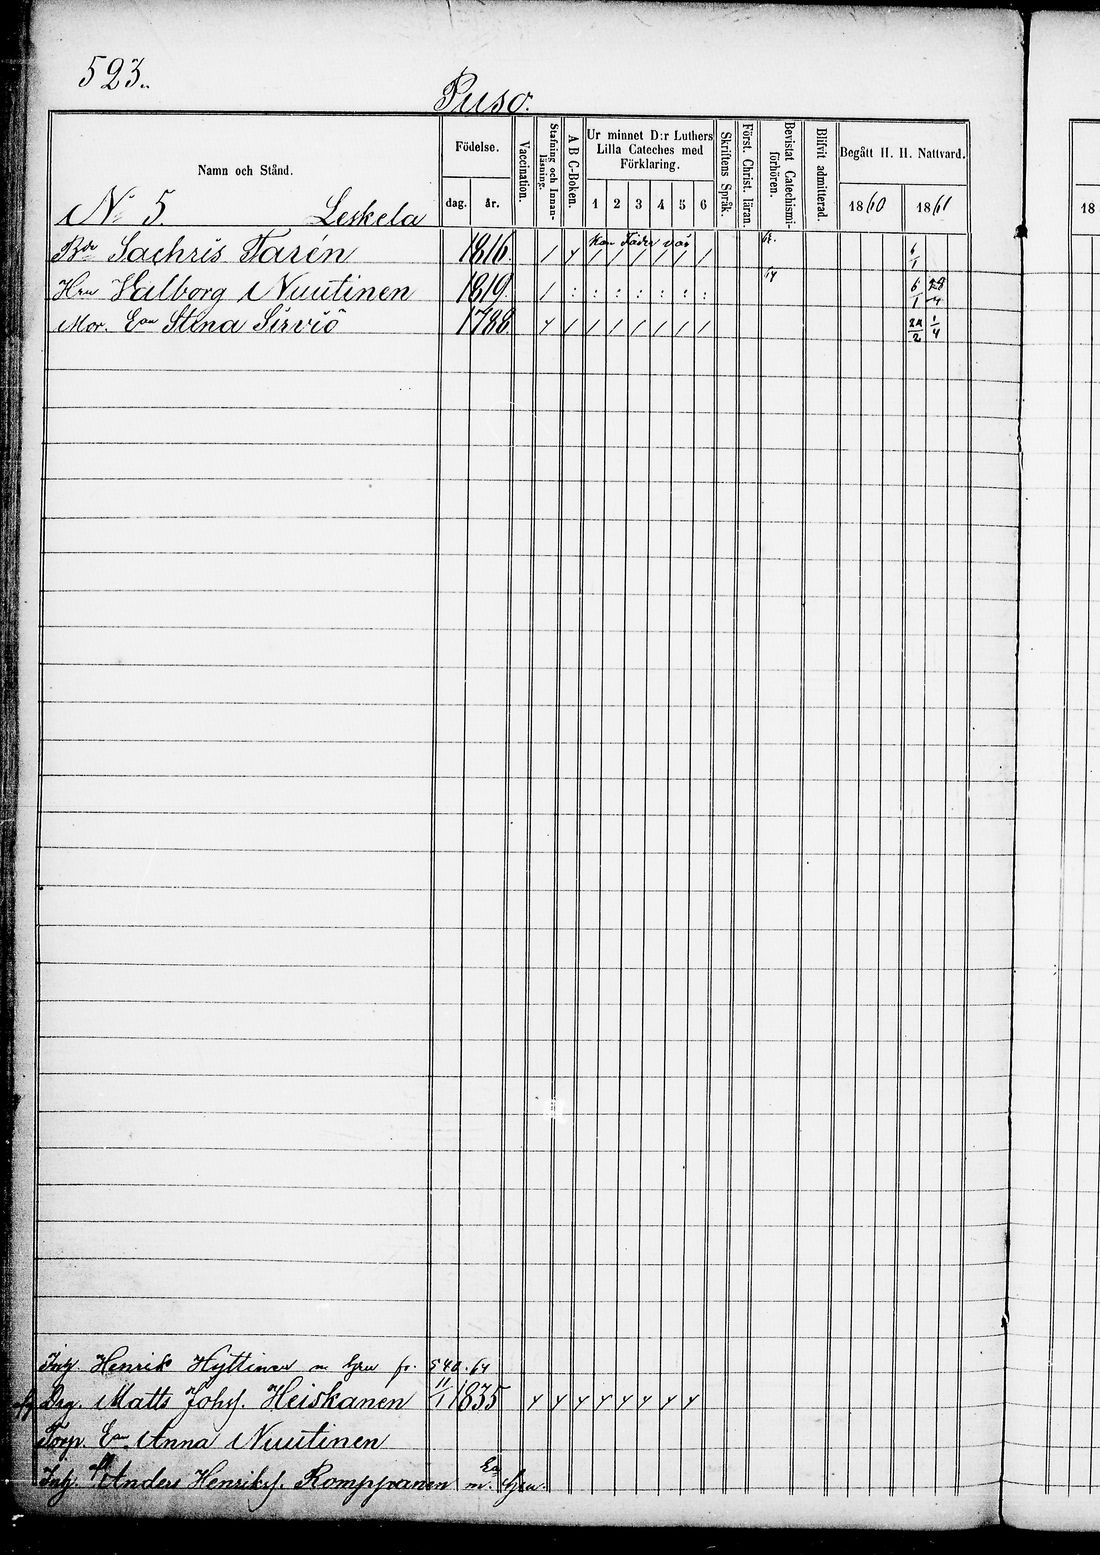 523.
Puso.
Namn och Stånd.
Födelse.
dag. år.
Vaccination.
Stafning och Innanläsning.
A B C-Boken.
Ur minnet D:r Luthers Lilla Cateches med Förklaring.
1 2 3 4 5 6
Skriftens Språk.
Först. Christ. läran.
Bevistat Catechismiförhören.
Blifvit admitterad.
Begått H. H. Nattvard.
1860 1861
18
No 5. Leskelä
Bde Sachris Tarén 1816. Kan Fader vår 6/1
Hru Valborg Nuutinen 1819. 64 6/1 28/4
Mor. Ean Stina Sirviö 1788. 24/2 1/4
Inh. Henrik Hyttinen m hru fr. 540. 64
Drg. Matts Johs. Heiskanen 11/1 1835
Torp. Ean Anna Nuutinen
Inh. Anders Henriks. Romppanen m. hru.